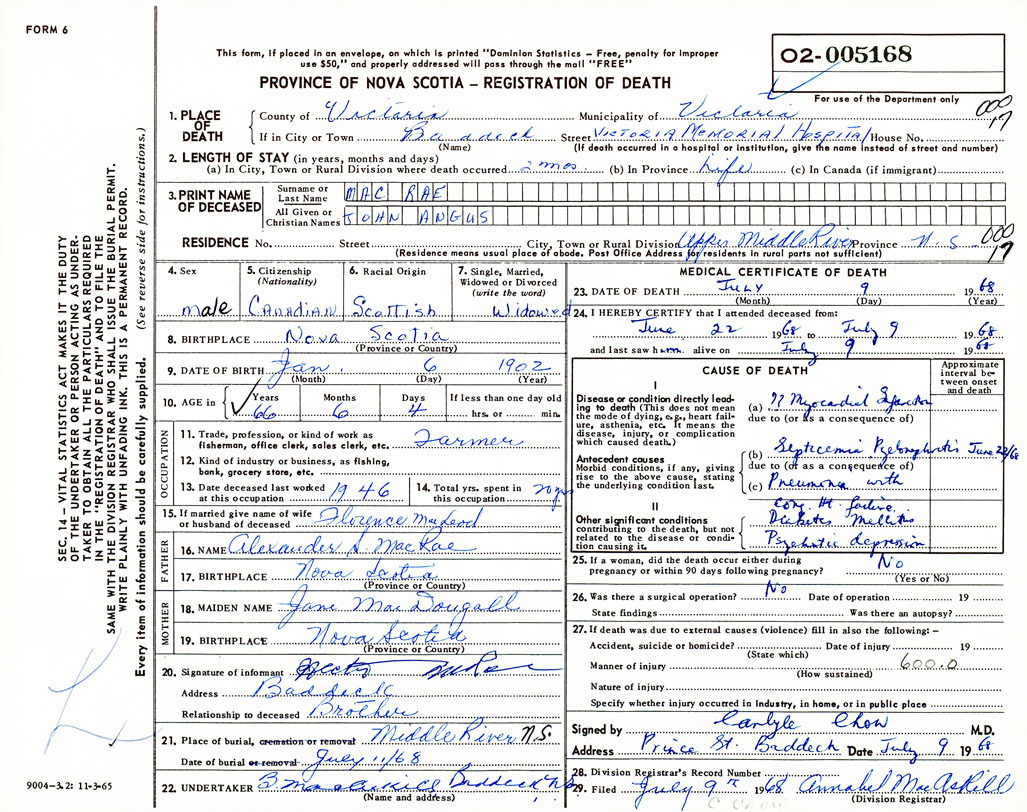 FORM 6
This form, if placed in an envelope, on which is printed "Dominion Statistics – Free, penalty for improper
use $50," and properly addressed will pass through the mail "FREE"
02-005168
PROVINCE OF NOVA SCOTIA – REGISTRATION OF DEATH
For use of the Department only
000
17
1. PLACE OF DEATH
County of Victoria Municipality of Victoria
If in City or Town Baddeck Street VICTORIA MEMORIAL HOSPITAL House No.
(Name) (If death occurred in a hospital or institution, give the name instead of street and number)
2. LENGTH OF STAY (in years, months and days)
(a) In City, Town or Rural Division where death occurred 2 mos. (b) In Province Life (c) In Canada (if immigrant)
3. PRINT NAME OF DECEASED
Surname or Last Name MAC RAE
All Given or Christian Names JOHN ANGUS
000
17
RESIDENCE No. Street City, Town or Rural Division Upper Middle River Province N.S.
(Residence means usual place of abode. Post Office Address for residents in rural parts not sufficient)
4. Sex male
5. Citizenship (Nationality) CANADIAN
6. Racial Origin Scottish
7. Single, Married, Widowed or Divorced (write the word) Widowed
8. BIRTHPLACE Nova Scotia
(Province or Country)
9. DATE OF BIRTH Jan. 6 1902
(Month) (Day) (Year)
10. AGE in Years 66 Months 6 Days 4 If less than one day old hrs. or min.
OCCUPATION
11. Trade, profession, or kind of work as fisherman, office clerk, sales clerk, etc. Farmer
12. Kind of industry or business, as fishing, bank, grocery store, etc.
13. Date deceased last worked at this occupation 1946
14. Total yrs. spent in this occupation 20 yrs
15. If married give name of wife or husband of deceased Florence MacLeod
FATHER
16. NAME Alexander S. MacRae
17. BIRTHPLACE Nova Scotia
(Province or Country)
MOTHER
18. MAIDEN NAME Jane MacDougall
19. BIRTHPLACE Nova Scotia
(Province or Country)
20. Signature of informant
Address Baddeck
Relationship to deceased Brother
21. Place of burial, cremation or removal Middle River N.S.
Date of burial or removal July 11/68
22. UNDERTAKER Baddeck NS
(Name and address)
MEDICAL CERTIFICATE OF DEATH
23. DATE OF DEATH JULY 9 1968
(Month) (Day) (Year)
24. I HEREBY CERTIFY that I attended deceased from:
June 22 1968 to July 9 1968
and last saw him alive on July 9 1968
CAUSE OF DEATH
Approximate interval between onset and death
I
Disease or condition directly leading to death (This does not mean the mode of dying, e.g., heart failure, asthenia, etc. It means the disease, injury, or complication which caused death.)
(a) ?? Myocardial Infarction
due to (or as a consequence of)
Antecedent causes
Morbid conditions, if any, giving rise to the above cause, stating the underlying condition last.
(b) Septicemia Pyelonephritis June 22/68
due to (or as a consequence of)
(c) Pneumonia with
Cong. Ht. failure.
II
Other significant conditions contributing to the death, but not related to the disease or condition causing it.
Diabetes Mellitus
Psychotic depression
25. If a woman, did the death occur either during pregnancy or within 90 days following pregnancy? No
(Yes or No)
26. Was there a surgical operation? No Date of operation 19
State findings Was there an autopsy?
27. If death was due to external causes (violence) fill in also the following: –
Accident, suicide or homicide? Date of injury 19
(State which)
Manner of injury 600.0
(How sustained)
Nature of injury
Specify whether injury occurred in industry, in home, or in public place
Signed by Carlyle Chow M.D.
Address Prince St. Baddeck Date July 9 1968
28. Division Registrar's Record Number
29. Filed July 9th 1968 Annabel MacAskill
(Division Registrar)
C Chow
SEC. 14 – VITAL STATISTICS ACT MAKES IT THE DUTY
OF THE UNDERTAKER OR PERSON ACTING AS UNDER-
TAKER TO OBTAIN ALL THE PARTICULARS REQUIRED
IN THE "REGISTRATION OF DEATH" AND TO FILE THE
SAME WITH THE DIVISION REGISTRAR WHO SHALL ISSUE THE BURIAL PERMIT.
WRITE PLAINLY WITH UNFADING INK. THIS IS A PERMANENT RECORD.
Every item of information should be carefully supplied. (See reverse side for instructions.)
9004-3.2: 11-3-65